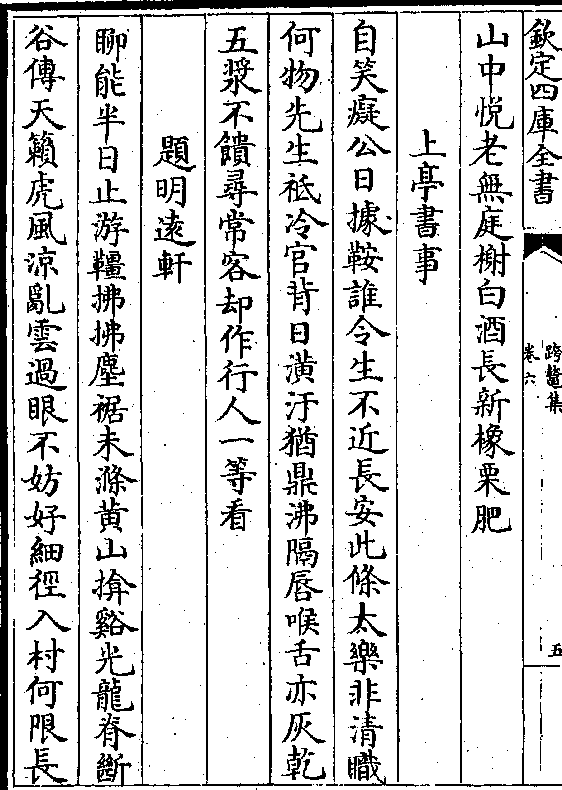 欽定四庫全書
跨鼇集
卷六
五
山中悅老無庭樹白酒長新橡栗肥
上亭書事
自笑癡公日據鞍誰令生不近長安此條太樂非清職
何物先生祗冷官背日潢汙猶鼎沸隔唇喉舌亦灰乾
五漿不饋尋常客却作行人一等看
題明遠軒
聊能半日止游韁拂拂塵裾未滌黄山揜谿光龍脊斷
谷傳天籟虎風涼亂雲過眼不妨好細徑入村何限長